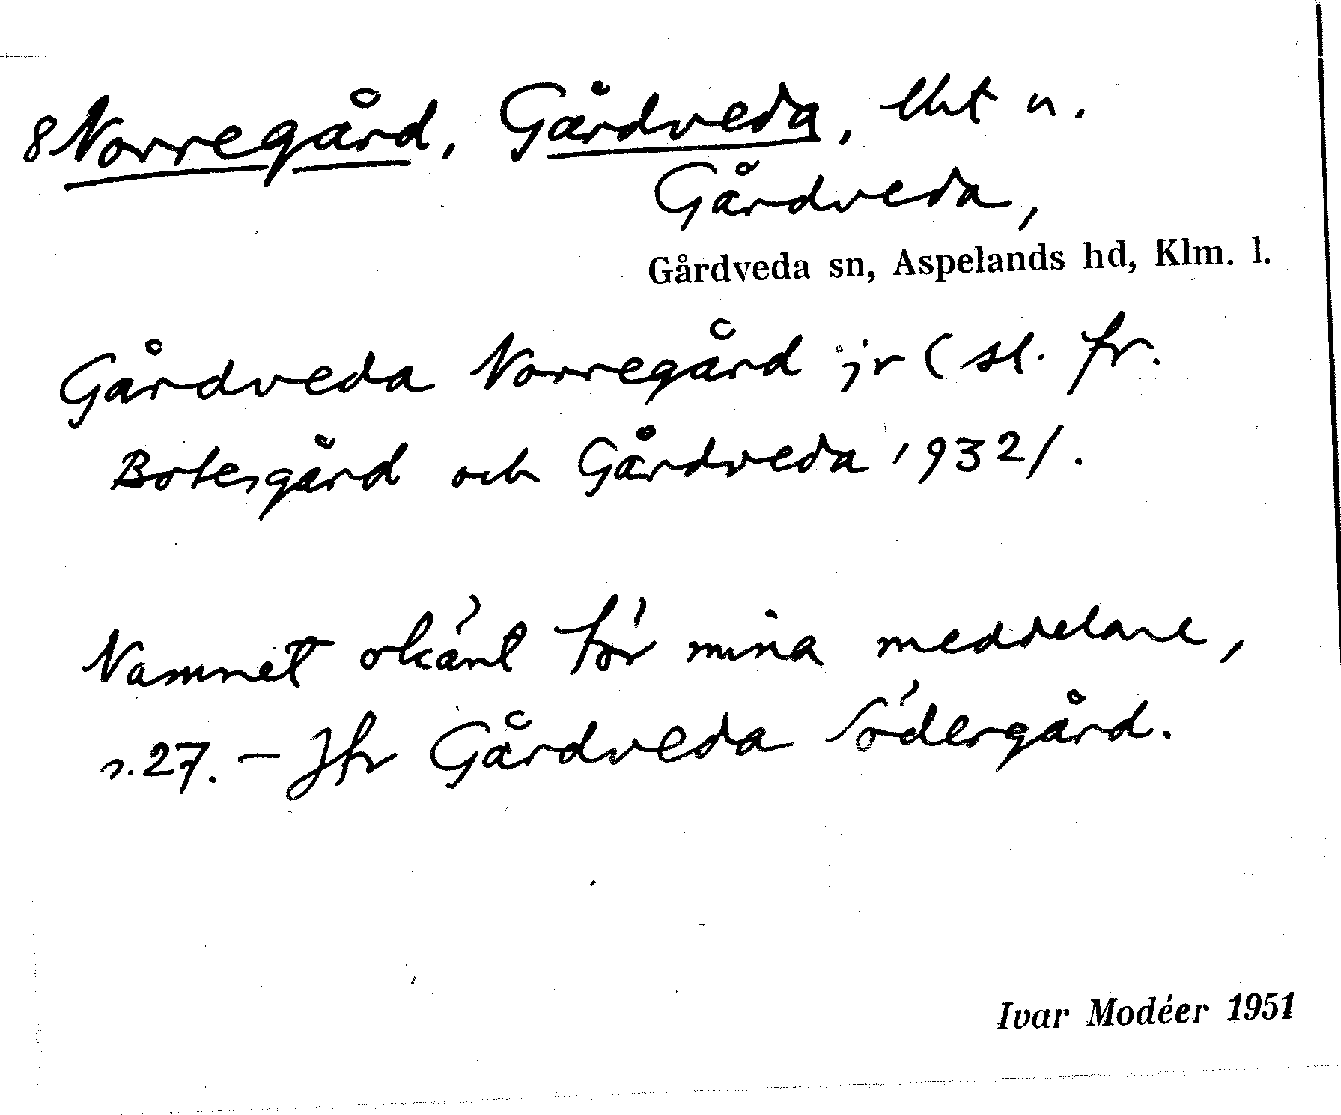 8 Norregård, Gårdveda, lht u.
Gårdveda,
Gårdveda sn, Aspelands hd, Klm. l.
Gårdveda Norregård jr (sl. fr.
Botesgård och Gårdveda 1932/.
Namnet okänt för mina meddelare,
s.27. – Jfr Gårdveda Södergård.
Ivar Modéer 1951